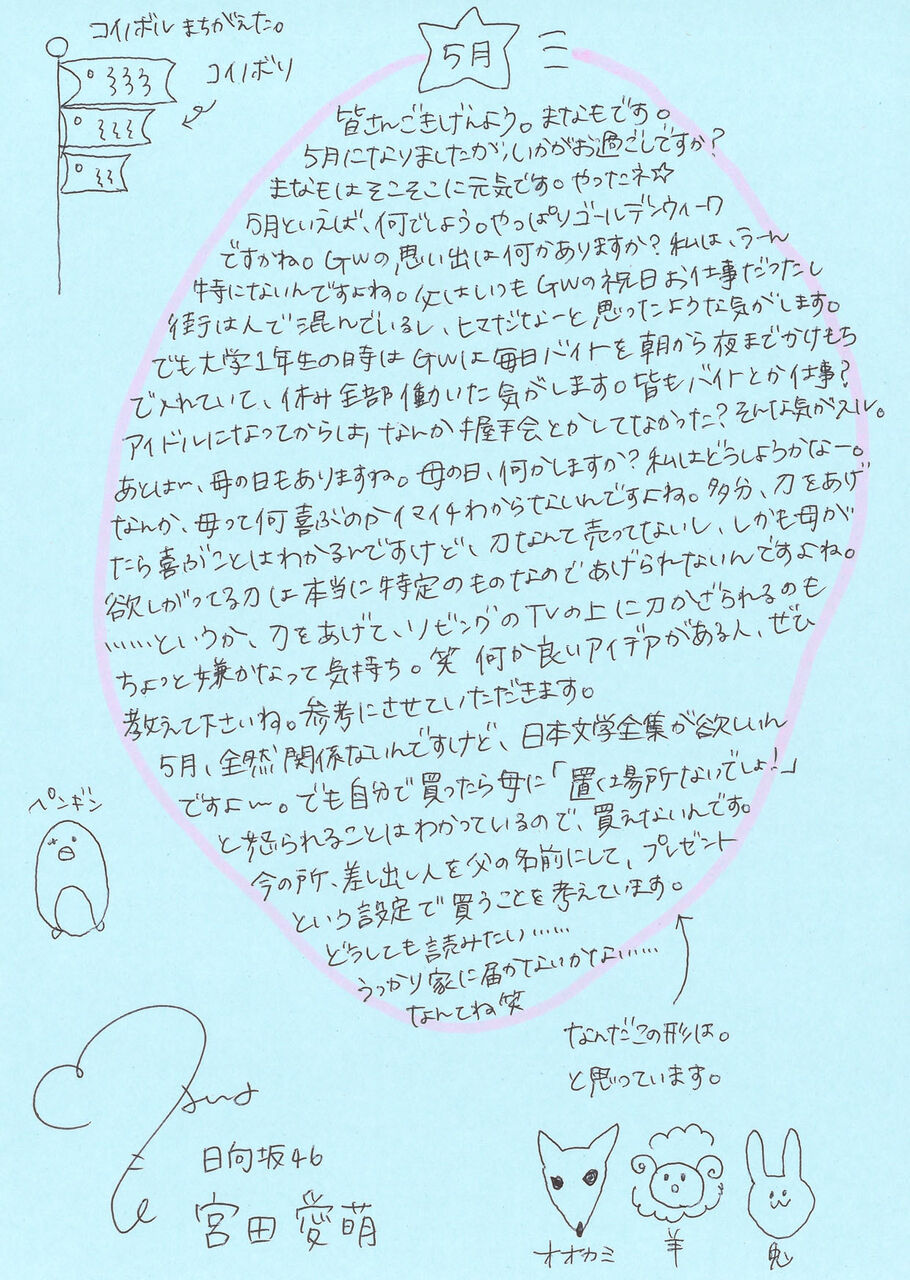 コイノボル まちがえた。
コイノボリ
5月
皆さんごきげんよう。まなもです。
5月になりましたが、いかがお過ごしですか?
まなもはそこそこに元気です。やったネ☆
5月といえば、何でしょう。やっぱりゴールデンウィーク
ですかね。GWの思い出は何かありますか?私は、うーん
特にないんですよね。父はいつもGWの祝日お仕事だったし
街は人で混んでいるし、ヒマだなーと思ったような気がします。
でも大学1年生の時はGWは毎日バイトを朝から夜までかけもち
で入れていて、休み全部働いた気がします。皆もバイトとか仕事?
アイドルになってからは、なんか握手会とかしてなかった?そんな気がスル。
あとは〜、母の日もありますね。母の日、何かしますか?私はどうしようかなー。
なんか、母って何喜ぶのかイマイチわからないんですよね。多分、刀をあげ
たら喜ぶことはわかるんですけど、刀なんて売ってないし、しかも母が
欲しがってる刀は本当に特定のものなのであげられないんですよね。
……というか、刀をあげて、リビングのTVの上に刀かざられるのも
ちょっと嫌かなって気持ち。笑 何か良いアイデアがある人、ぜひ
教えて下さいね。参考にさせていただきます。
5月、全然関係ないんですけど、日本文学全集が欲しいん
ですよ〜。でも自分で買ったら母に「置く場所ないでしょ!」
と怒られることはわかっているので、買えないんです。
今の所、差し出し人を父の名前にして、プレゼント
という設定で買うことを考えています。
どうしても読みたい……
うっかり家に届かないかな……
なんてね笑
なんだこの形は。
と思っています。
ペンギン
日向坂46
宮田愛萌
オオカミ
羊
兎